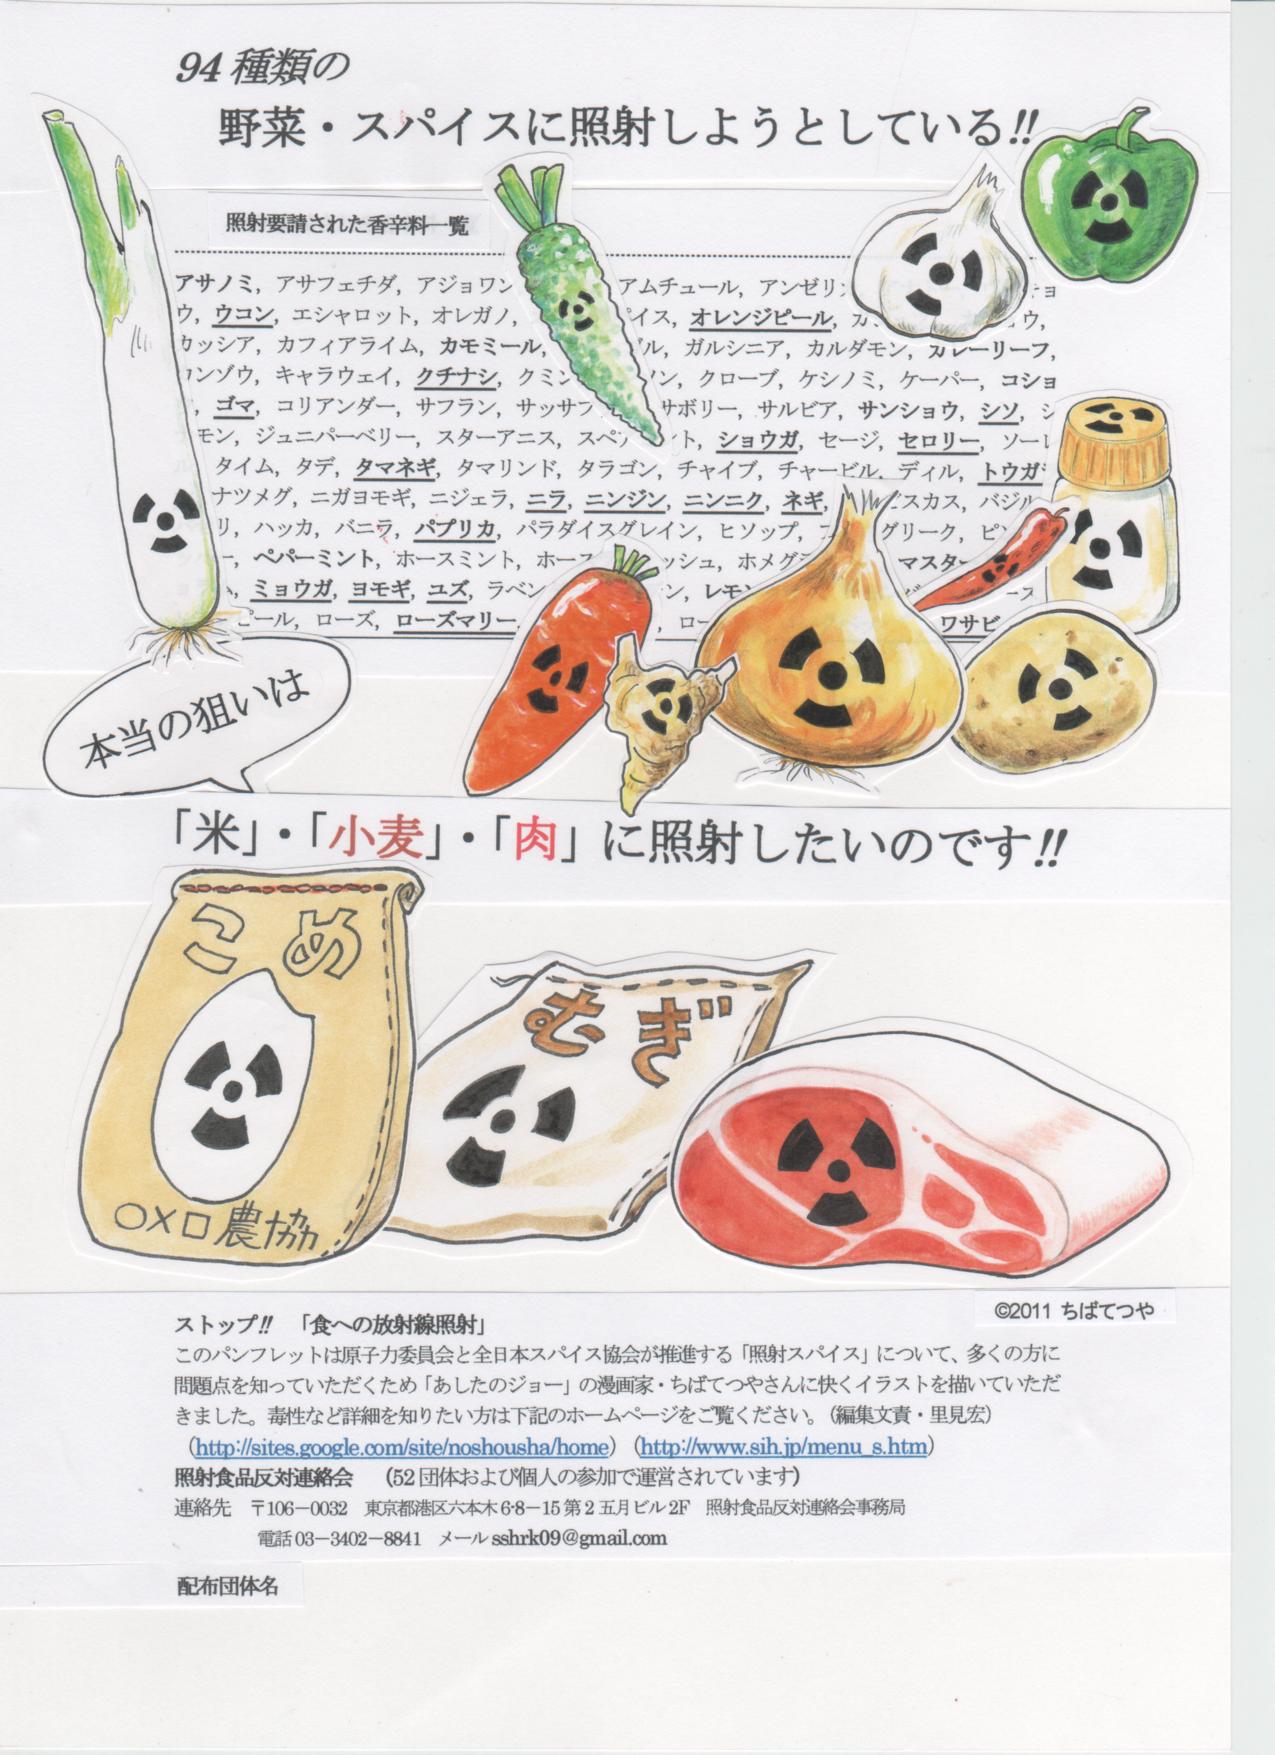 94種類の
野菜・スパイスに照射しようとしている!!
照射要請された香辛料一覧
アサノミ, アサフェチダ, アジョワン アムチュール, アンゼリ
ウ, ウコン, エシャロット, オレガノ, イス, オレンジピール, ウ,
カッシア, カフィアライム, カモミール, ル, ガルシニア, カルダモン, カレーリーフ,
カンゾウ, キャラウェイ, クチナシ, クミン ン, クローブ, ケシノミ, ケーパー, コショ
ゴマ, コリアンダー, サフラン, サッサフ サボリー, サルビア, サンショウ, シソ, シ
モン, ジュニパーベリー, スターアニス, スペア ト, ショウガ, セージ, セロリー, ソーレ
タイム, タデ, タマネギ, タマリンド, タラゴン, チャイブ, チャービル, ディル, トウガ
ナツメグ, ニガヨモギ, ニジェラ, ニラ, ニンジン, ニンニク, ネギ, ビスカス, バジル
リ, ハッカ, バニラ, パプリカ, パラダイスグレイン, ヒソップ, グリーク, ピン
ー, ペパーミント, ホースミント, ホー ッシュ, ホメグラ マスター
ミョウガ, ヨモギ, ユズ, ラベン ン, レモン ース
ピール, ローズ, ローズマリー, ロー ワサビ
本当の狙いは
「米」・「小麦」・「肉」に照射したいのです!!
こめ
○×□農協
むぎ
©2011 ちばてつや
ストップ!! 「食への放射線照射」
このパンフレットは原子力委員会と全日本スパイス協会が推進する「照射スパイス」について、多くの方に
問題点を知っていただくため「あしたのジョー」の漫画家・ちばてつやさんに快くイラストを描いていただ
きました。毒性など詳細を知りたい方は下記のホームページをご覧ください。（編集文責・里見宏）
（http://sites.google.com/site/noshousha/home）（http://www.sih.jp/menu_s.htm）
照射食品反対連絡会 （52団体および個人の参加で運営されています）
連絡先 〒106－0032 東京都港区六本木6-8－15第2五月ビル2F 照射食品反対連絡会事務局
電話03－3402－8841 メールsshrk09@gmail.com
配布団体名